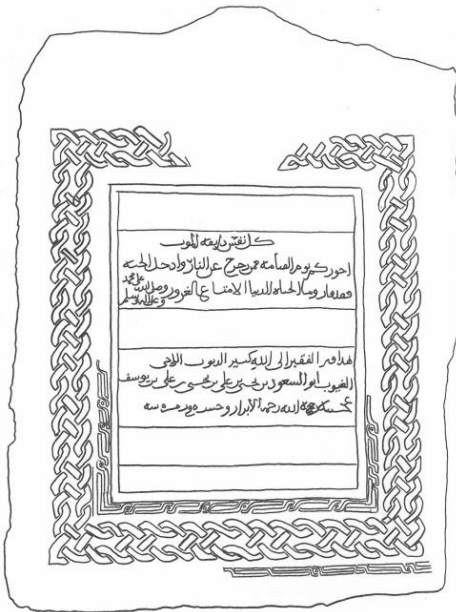 كل نفس ذايقه الموت
اجوركم يوم القيامة فمن زحزح عن النار وادخل الجنه
فقد فاز وما الحياه الدنيا الا متاع الغرور وصلى الله على محمد وعلى اله وسلم
هذا قبر الفقير الى الله كسير الذنوب اللاجى
الغيوب أبو السعود بن يحيى بن علي بن يحيى بن علي بن يوسف
الله رحمة الابرار